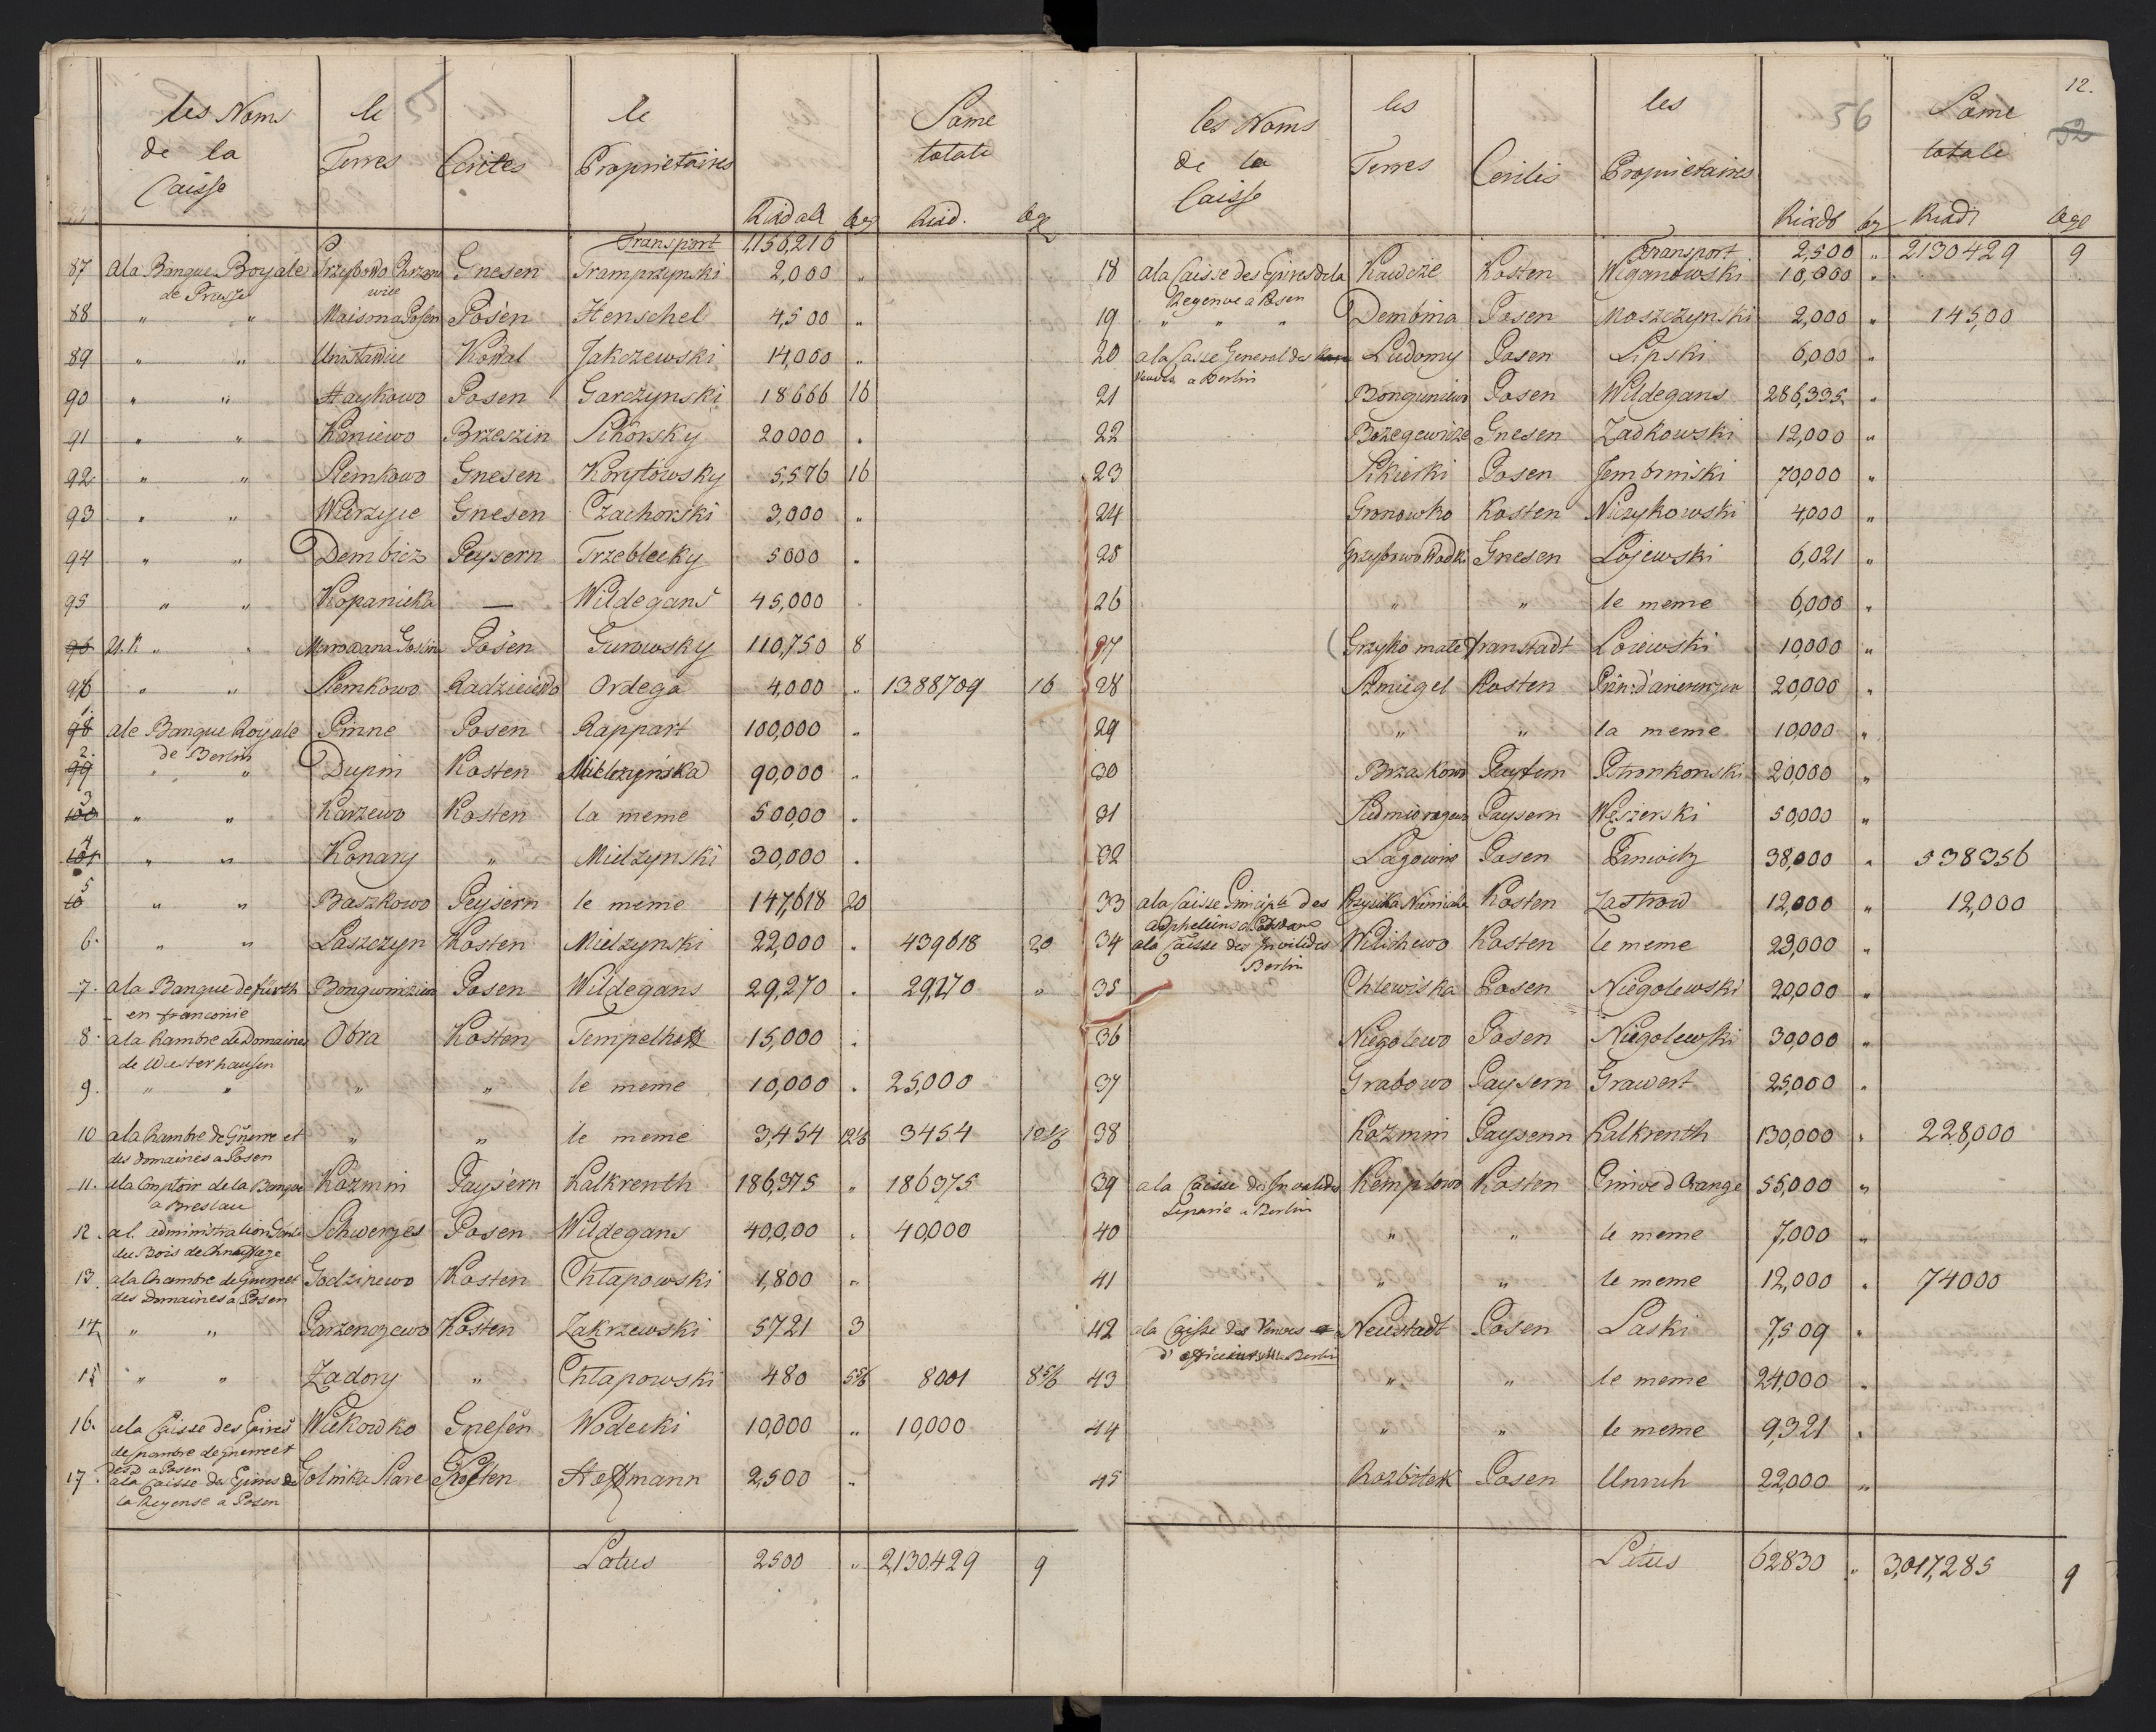 les Noms de la Caisse | le Terres | Cerites | le Proprietaires | Riadall | bg | Some totale Riad. | bgl
Transport 1,156,216
87 a la Banque Royale de Prusse | Grzybowo Chrzanowice | Gnesen | Trampczynski | 2,000 | "
88 " " | Maison a Posen | Posen | Henschel | 4,500 | "
89 " " | Unislawice | Kowal | Jakczewski | 14,000 | "
90 " " | Haykowo | Posen | Garczynski | 18666 | 16
91 " " | Kaniewo | Brzeszin | Sikorsky | 20000 | "
92 " " | Slemkowo | Gnesen | Korytowsky | 5,576 | 16
93 " " | Warzyce | Gnesen | Czachorski | 3,000 | "
94 " " | Dembicz | Peysern | Trzeblecky | 5000 | "
95 " " | Kopanicka | — | Wildegans | 45,000 | "
96 " " | Murowana Goslin | Posen | Gurowsky | 110,750 | 8
96 " " | Slemkowo | Radzieiewo | Ordega | 4,000 | " | 1388709 | 16
98 1 a le Banque Royale de Berlin | Pinne | Posen | Rappart | 100,000 | "
99 2. " " | Dupin | Kosten | Mielczynska | 90,000 | "
100 3 " " | Karzewo | Kosten | la meme | 50000 | "
101 4 " " | Konary | " | Mielzynski | 30,000 | "
10 5 " " | Baszkowo | Peysern | le meme | 147,618 | 20
6. " " | Laszczyn | Kosten | Mielzynski | 22,000 | " | 439618 | 20
7. a la Banque de fürth en franconie | Bongwinziew | Posen | Wildegans | 29,270 | " | 29,270 | "
8. a la Kambre de Domaines de Wusterhausen | Obra | Kosten | Tempelhoff | 15,000 | "
9. " " | " | " | le meme | 10,000 | " | 25,000
10 a la Kambre de Guerre et des Domaines a Posen | " | " | le meme | 3,454 | 12 1/6 | 3454 | 12 1/6
11. a la Comptoir de la Banque a Breslau | Kozmin | Paysern | Kalkreuth | 186,375 | " | 186375
12. a l. administration | Schwerzes | Posen | Wildegans | 40,000 | " | 40,000
du Bois de Chauffage
13 a la Chambre de Guerre et des Domaines a Posen | Godziszewo | Kosten | Chlapowski | 1,800 | "
14 " " | Parzenczewo | Kosten | Zakrzewski | 5721 | 3
15 " " | Zadory | " | Chlapowski | 480 | 5 5/6 | 8001 | 8 5/6
16. a la Caisse des | Wiekowko | Gnesen | Wodecki | 10,000 | " | 10,000
a Posen
17. a la Caisse des | Golinka Stare | Kosten | Hoffmann | 2,500 | "
la Regense a Posen
Latus | 2500 | " | 2,130429 | 9
12.
56
52
les Noms de la Caisse | les Terres | Cerilis | les Proprietaires | Riadl | bg | Some totale Riadl | bgl
Transport 2,500 " 2130429 9
18 a la Caisse des | Kawcze | Kosten | Wiganowski | 10,000 | "
Regence a Posen
19 " " " | Dembina | Posen | Moszczynski | 2,000 | " | 14500
20 a la Casse General des Veuves a Berlin | Ludomy | Posen | Lipski | 6,000 | "
21 | Bonguniewo | Posen | Wildegans | 286,335 | "
22 | Bozegewicze | Gnesen | Zadkowski | 12,000 | "
23 | Sikierki | Posen | Jembrinski | 70,000 | "
24 | Gronowko | Kosten | Niczykowski | 4,000 | "
25 | Grzybowo Wodki | Gnesen | Lojewski | 6,021 | "
26 | " | " | le meme | 6,000 | "
27 | Grzyko male | franstadt | Loiewski | 10,000 | "
28 | Szmiegel | Kosten | | 20,000 | "
29 | " | " | la meme | 10,000 | "
30 | Brzaskowo | Peysern | Stronkonski | 20,000 | "
31 | | Paysern | Weszerski | 50,000 | "
32 | Lagowino | Posen | Panwitz | 38,000 | " | 538356
33 a la Caisse Principle des | | Kosten | Zastrow | 12,000 | " | 12,000
34 a la Caisse des Invalides Berlin | Wilichowo | Kosten | le meme | 23,000 | "
35 | Chlewiska | Posen | Niegolewski | 20,000 | "
36 | Niegolewo | Posen | Niegolewski | 30,000 | "
37 | Grabowo | Paysern | Grawert | 25,000 | "
38 | Kozmin | Paysern | Kalkreuth | 130,000 | " | 228,000
39 a la Caisse des Invalides Separie a Berlin | Kemplewo | Kosten | Prince d Orange | 55,000 | "
40 | " | " | le meme | 7,000 | "
41 | " | " | le meme | 12,000 | " | 74000
42 a la Caisse des Veuves d' officiers a Berlin | Neustadt | Posen | Laski | 7,509 | "
43 | " | " | le meme | 24,000 | "
44 | " | " | le meme | 9,321 | "
45 | Rozbitek | Posen | Unruh | 22,000 | "
Latus | 62830 | " | 3,017,285 | 9